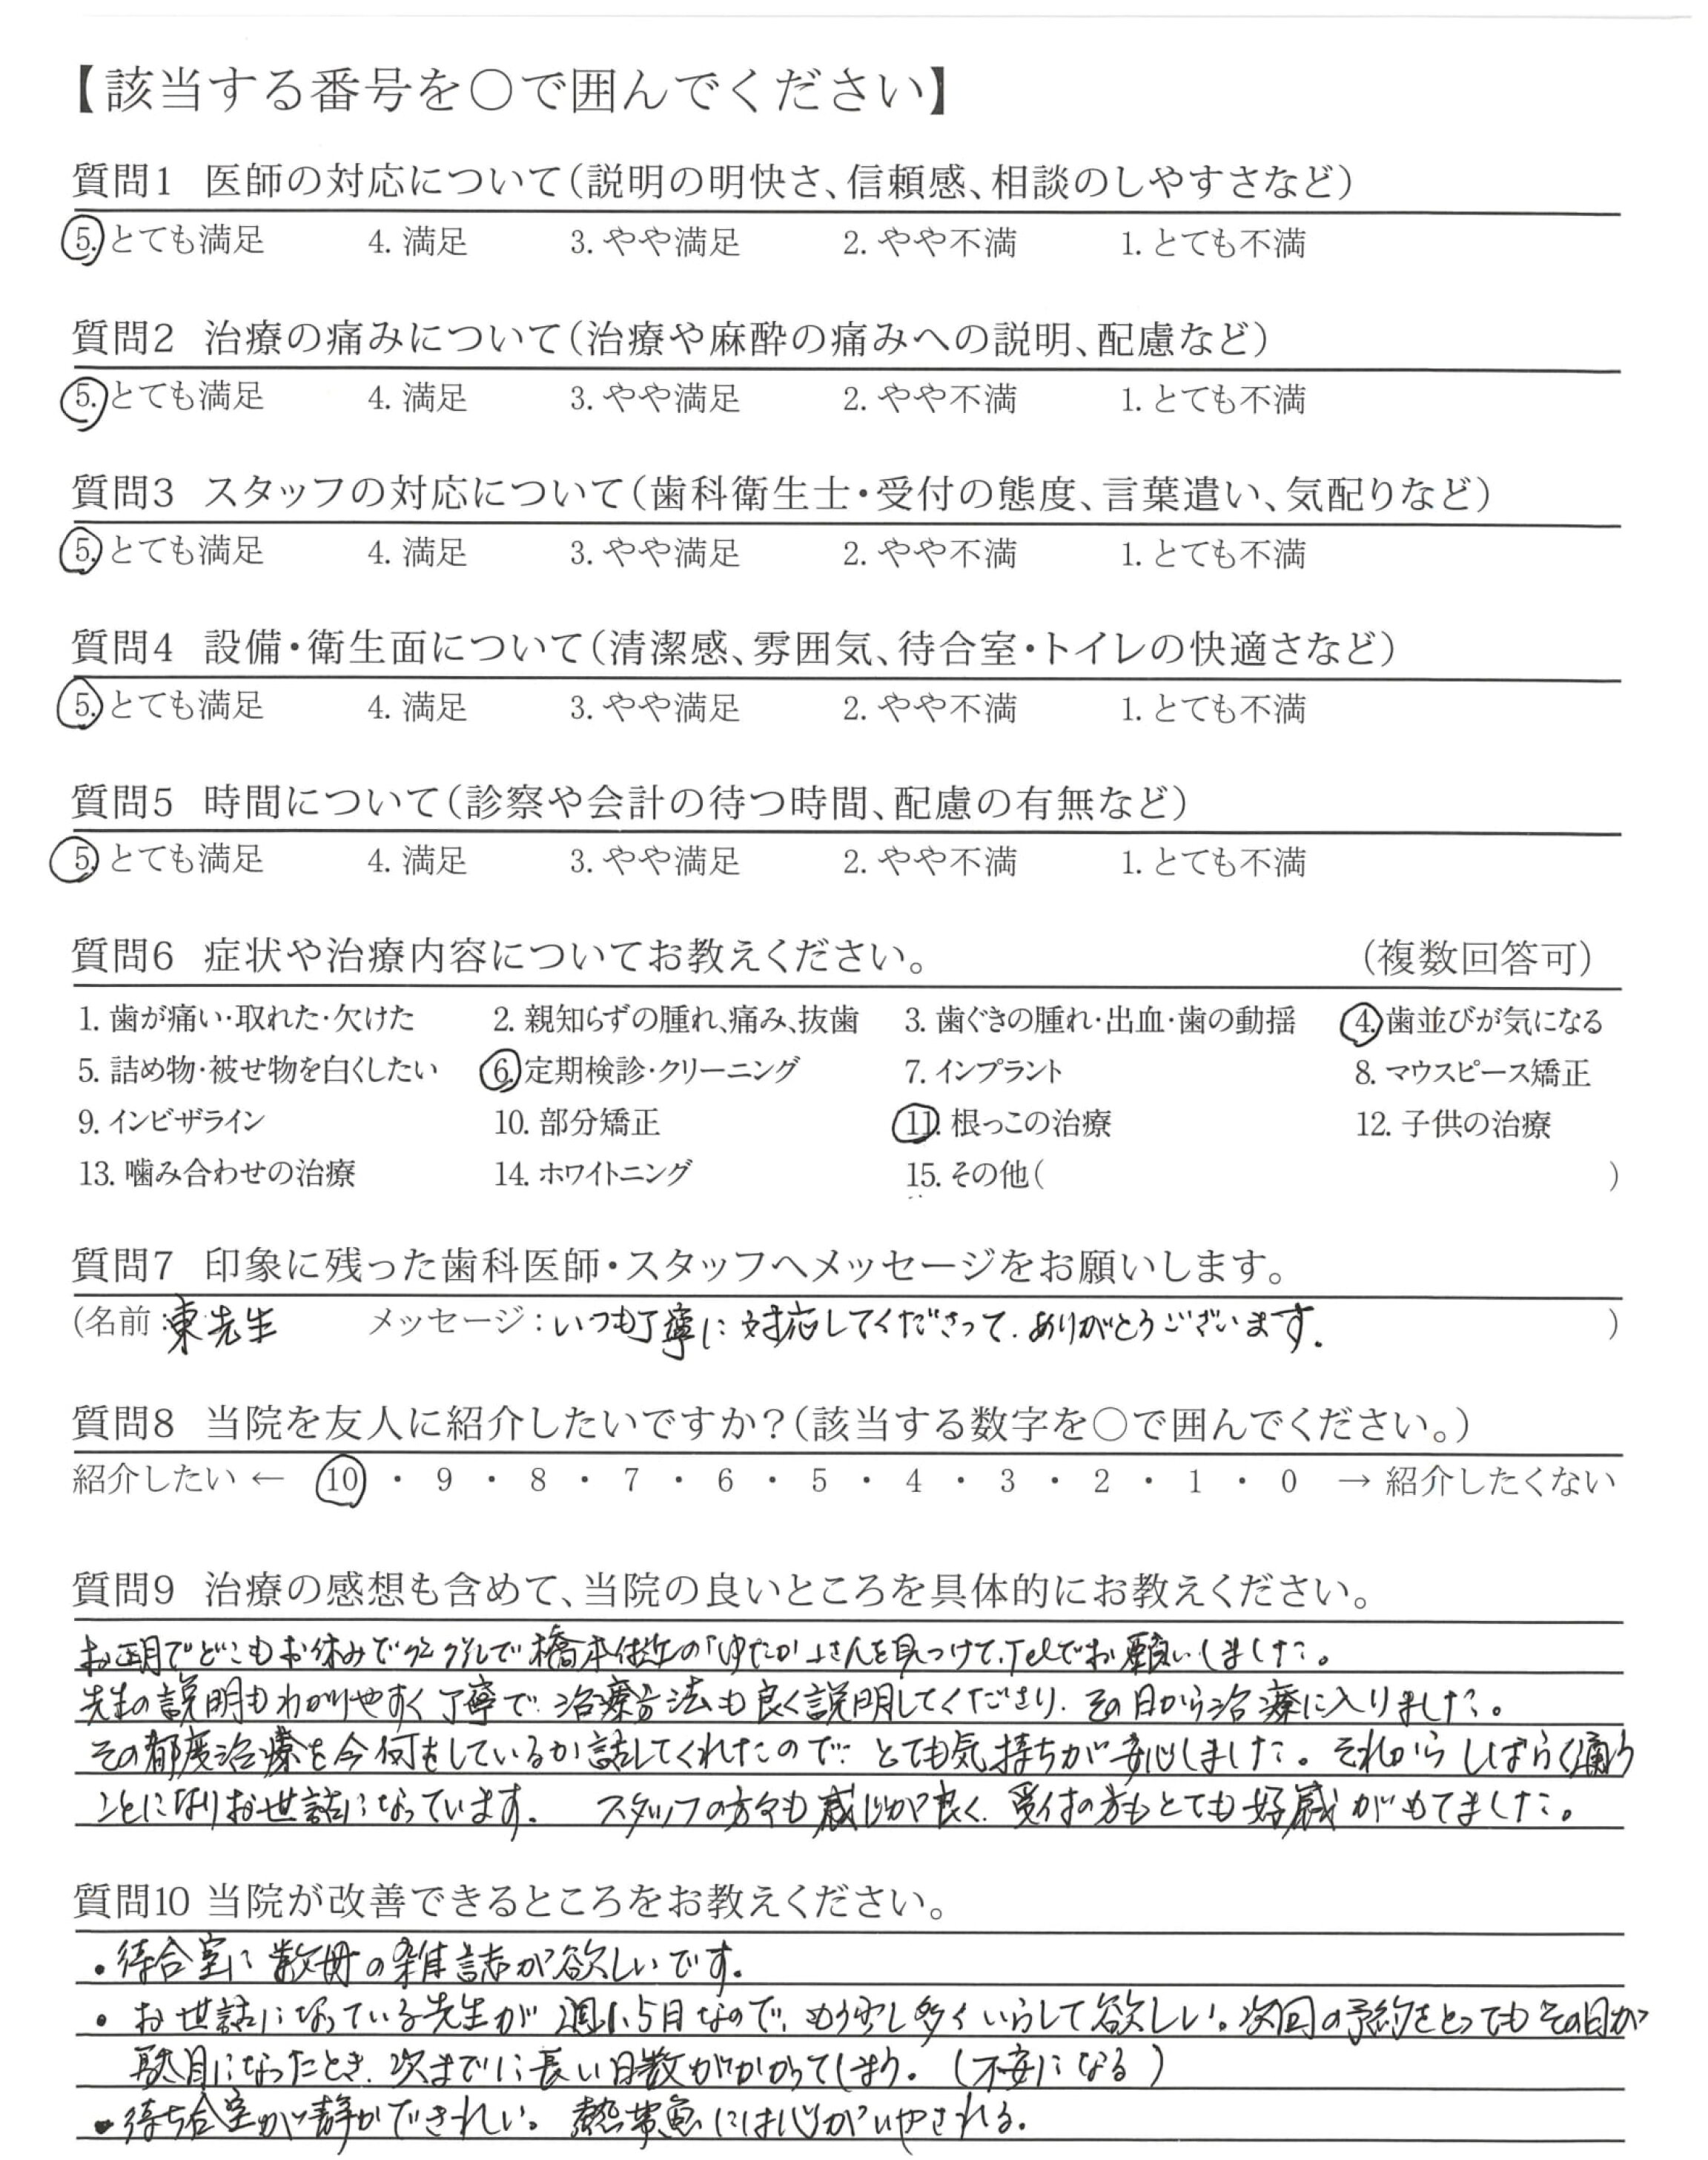 【該当する番号を○で囲んでください】
質問1 医師の対応について(説明の明快さ、信頼感、相談のしやすさなど)
5. とても満足 4. 満足 3. やや満足 2. やや不満 1. とても不満
質問2 治療の痛みについて(治療や麻酔の痛みへの説明、配慮など)
5. とても満足 4. 満足 3. やや満足 2. やや不満 1. とても不満
質問3 スタッフの対応について(歯科衛生士・受付の態度、言葉遣い、気配りなど)
5. とても満足 4. 満足 3. やや満足 2. やや不満 1. とても不満
質問4 設備・衛生面について(清潔感、雰囲気、待合室・トイレの快適さなど)
5. とても満足 4. 満足 3. やや満足 2. やや不満 1. とても不満
質問5 時間について(診察や会計の待つ時間、配慮の有無など)
5. とても満足 4. 満足 3. やや満足 2. やや不満 1. とても不満
質問6 症状や治療内容についてお教えください。 (複数回答可)
1. 歯が痛い・取れた・欠けた 2. 親知らずの腫れ、痛み、抜歯 3. 歯ぐきの腫れ・出血・歯の動揺 4. 歯並びが気になる
5. 詰め物・被せ物を白くしたい 6. 定期検診・クリーニング 7. インプラント 8. マウスピース矯正
9. インビザライン 10. 部分矯正 11. 根っこの治療 12. 子供の治療
13. 噛み合わせの治療 14. ホワイトニング 15. その他( )
質問7 印象に残った歯科医師・スタッフへメッセージをお願いします。
(名前:東先生 メッセージ:いつも丁寧に対応してくださって、ありがとうございます。 )
質問8 当院を友人に紹介したいですか?(該当する数字を○で囲んでください。)
紹介したい ← 10 ・ 9 ・ 8 ・ 7 ・ 6 ・ 5 ・ 4 ・ 3 ・ 2 ・ 1 ・ 0 → 紹介したくない
質問9 治療の感想も含めて、当院の良いところを具体的にお教えください。
お正月でどこもお休みでグーグルで橋本付近の「ゆたか」さんを見つけて、Telでお願いしました。
先生の説明もわかりやすく丁寧で、治療方法も良く説明してくださり、その日から治療に入りました。
その都度治療を今何をしているか話してくれたので、とても気持ちが安心しました。それからしばらく通う
ことになりお世話になっています。 スタッフの方々も感じが良く、受付の方もとても好感がもてました。
質問10 当院が改善できるところをお教えください。
・待合室に数冊の雑誌が欲しいです。
・お世話になっている先生が週1.5日なので、もう少し多くいらして欲しい。次回の予約をとってもその日が
駄目になったとき、次までに長い日数がかかってしまう。(不安になる)
・待ち合室が静かできれい。熱帯魚には心がいやされる。